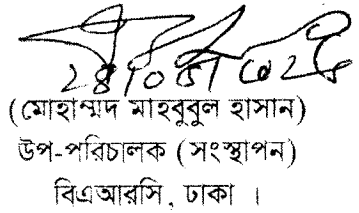 (মোহাম্মদ মাহবুবুল হাসান)
উপ-পরিচালক (সংস্থাপন)
বিএআরসি, ঢাকা ।